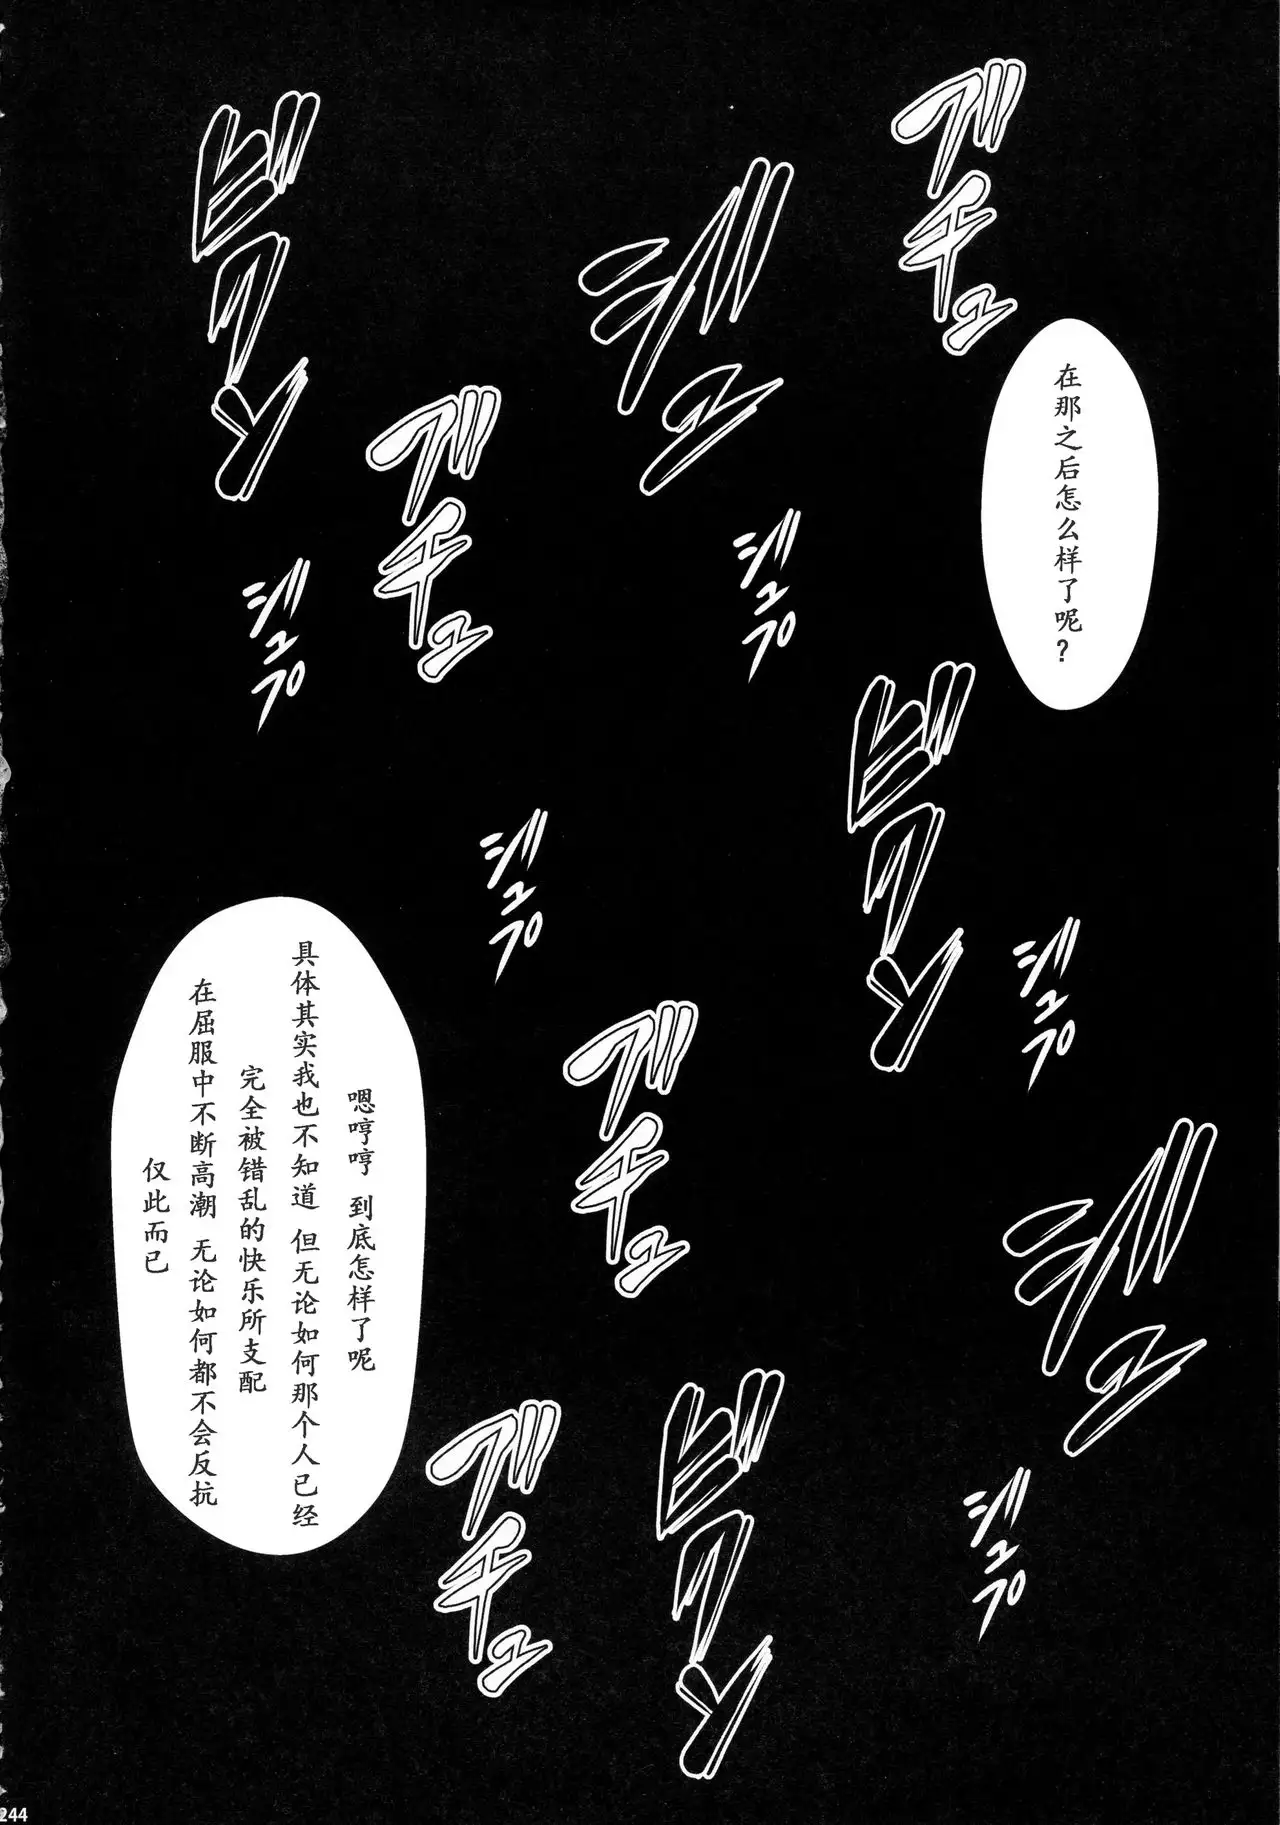 ゲチュ
ジュ
ビクン
在那之后怎么样了呢?
ゲチュ
ジュプ
ジュプ
ビクン
ジュプ
ジュプ
ゲチュ
ジュ
嗯哼哼 到底怎样了呢
具体其实我也不知道 但无论如何那个人已经
完全被错乱的快乐所支配
在屈服中不断高潮 无论如何都不会反抗
仅此而已
ビクン
ゲチュ
ジュプ
244